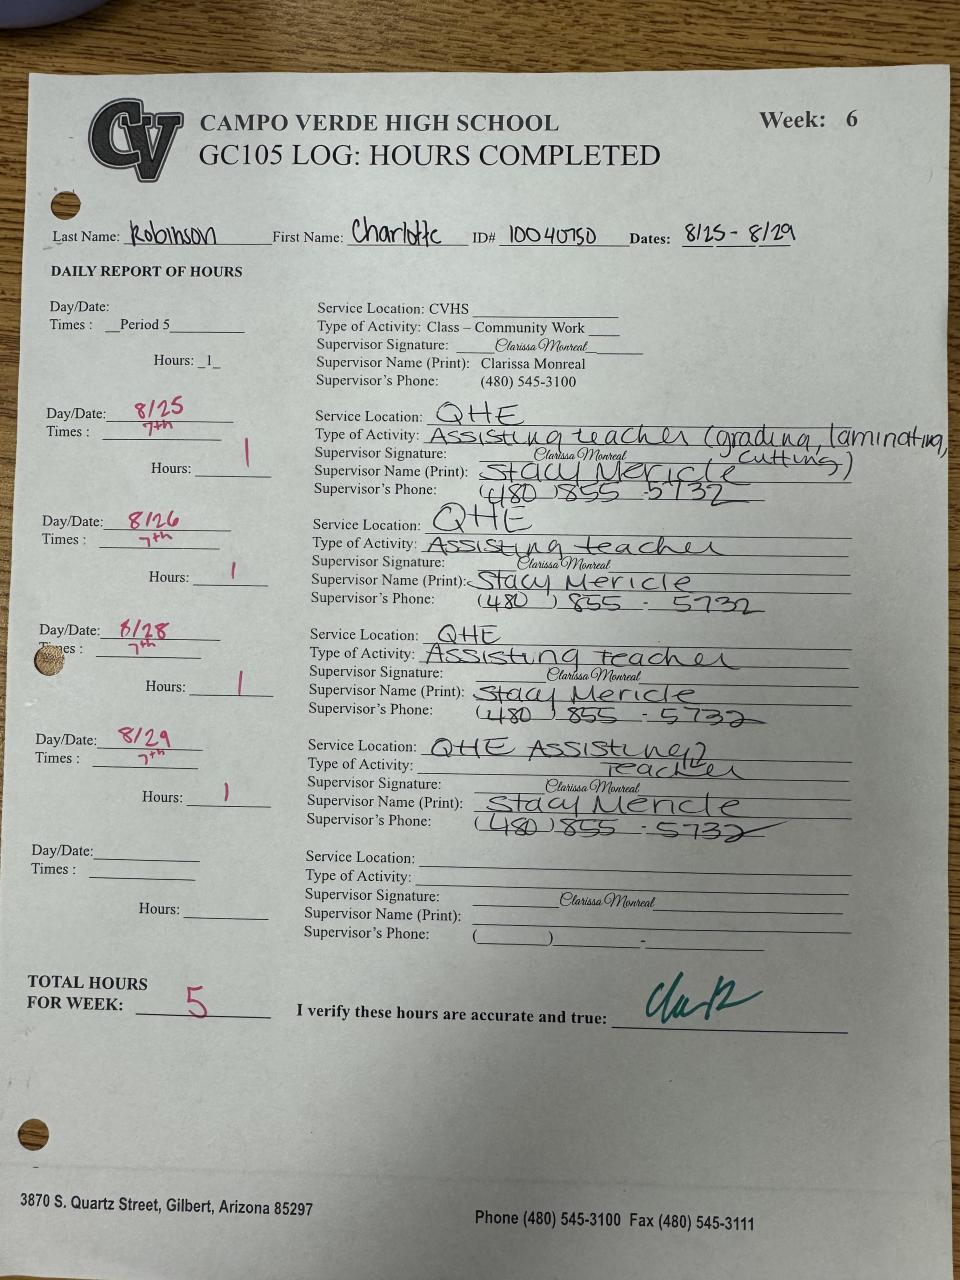 CV
CAMPO VERDE HIGH SCHOOL
Week: 6
GC105 LOG: HOURS COMPLETED
Last Name: Robinson First Name: Charlotte ID# 10040750 Dates: 8/25 - 8/29
DAILY REPORT OF HOURS
Day/Date:
Times : __Period 5________
Hours: _1_
Service Location: CVHS
Type of Activity: Class – Community Work
Supervisor Signature: Clarissa Monreal
Supervisor Name (Print): Clarissa Monreal
Supervisor's Phone: (480) 545-3100
Day/Date: 8/25
Times : 7th
Hours: 1
Service Location: QHE
Type of Activity: Assisting teacher (grading, laminating,
cutting)
Supervisor Signature: Clarissa Monreal
Supervisor Name (Print): Stacy Mericle
Supervisor's Phone: (480) 855 - 5732
Day/Date: 8/26
Times : 7th
Hours: 1
Service Location: QHE
Type of Activity: Assisting teacher
Supervisor Signature: Clarissa Monreal
Supervisor Name (Print): Stacy Mericle
Supervisor's Phone: (480) 855 - 5732
Day/Date: 8/28
Times: 7th
Hours: 1
Service Location: QHE
Type of Activity: Assisting teacher
Supervisor Signature: Clarissa Monreal
Supervisor Name (Print): Stacy Mericle
Supervisor's Phone: (480) 855 - 5732
Day/Date: 8/29
Times : 7th
Hours: 1
Service Location: QHE Assisting
Type of Activity: teacher
Supervisor Signature: Clarissa Monreal
Supervisor Name (Print): Stacy Mericle
Supervisor's Phone: (480) 855 - 5732
Day/Date:
Times :
Hours:
Service Location:
Type of Activity:
Supervisor Signature: Clarissa Monreal
Supervisor Name (Print):
Supervisor's Phone: ( ) -
TOTAL HOURS
FOR WEEK: 5
I verify these hours are accurate and true:
3870 S. Quartz Street, Gilbert, Arizona 85297
Phone (480) 545-3100 Fax (480) 545-3111